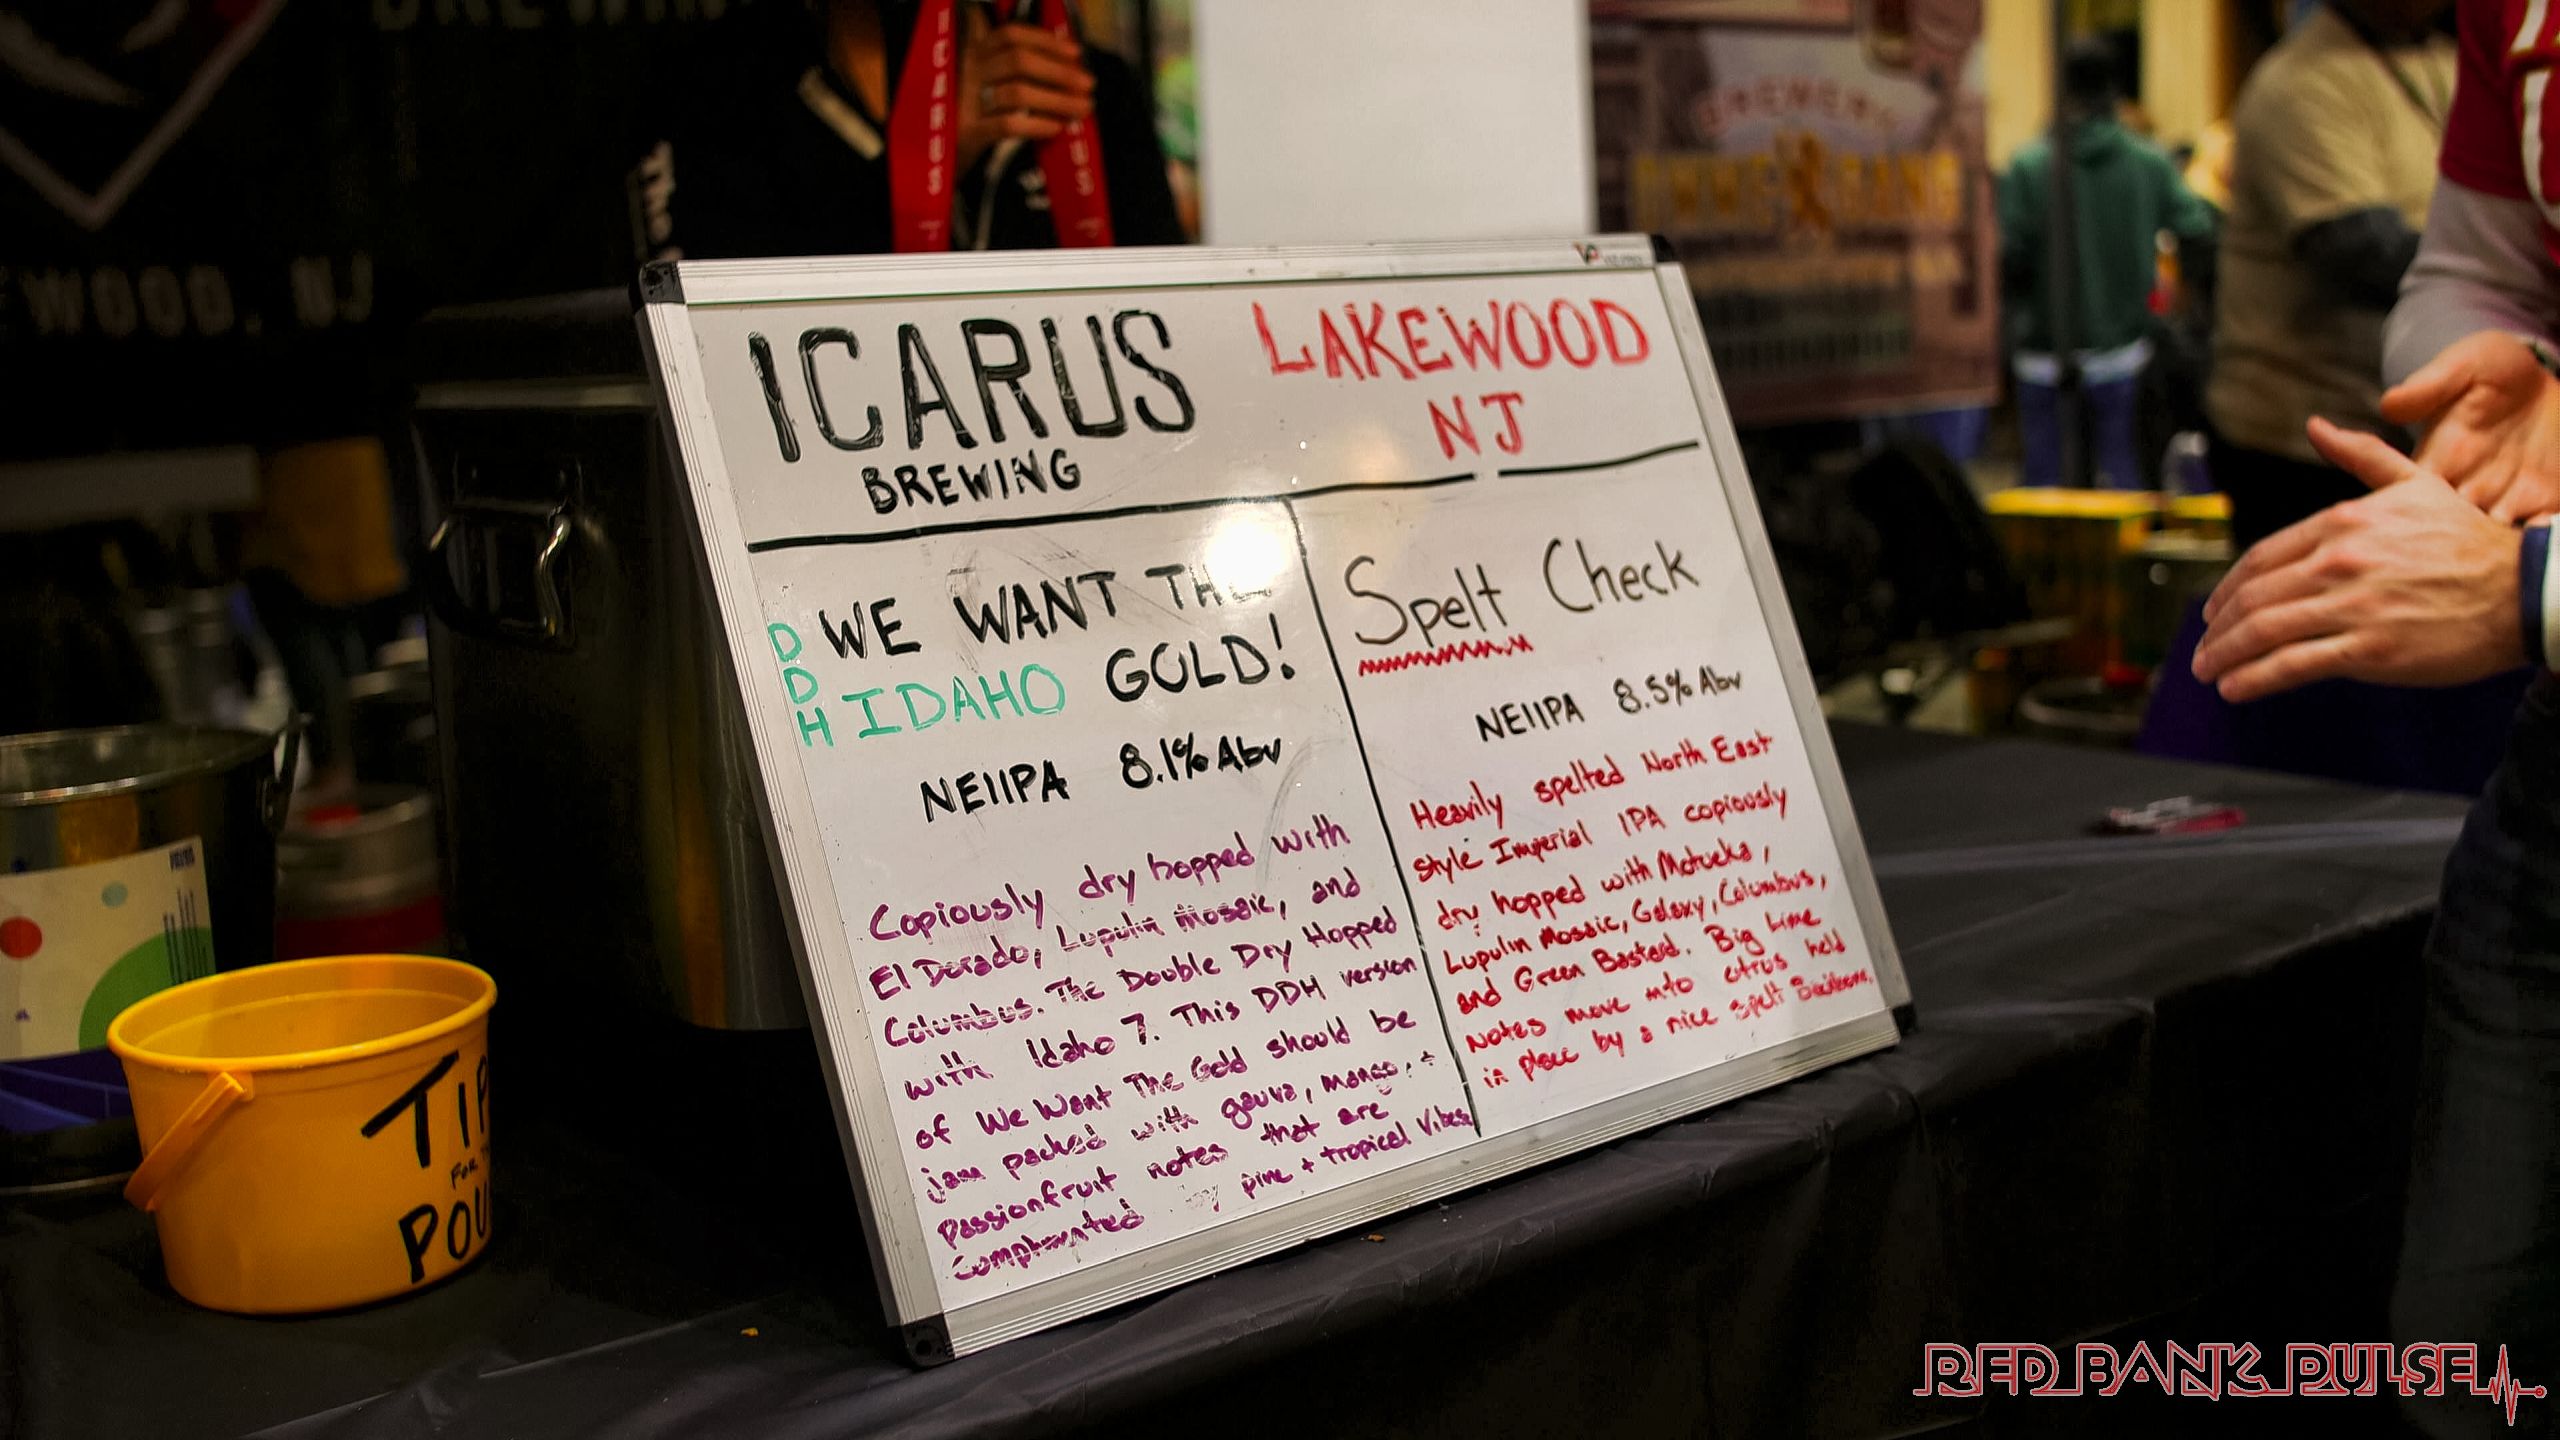 ICARUS
BREWING
LAKEWOOD
NJ
WE WANT THE
DDH IDAHO GOLD!
NEIIPA 8.1% Abv
Copiously dry hopped with
El Dorado, Lupulin Mosaic, and
Columbus. The Double Dry Hopped
with Idaho 7. This DDH version
of We Want The Gold should be
jam packed with gauva, mango, +
passionfruit notes that are
by pine + tropical Vibes
Spelt Check
NEIIPA 8.5% Abv
Heavily spelted North East
style Imperial IPA copiously
dry hopped with Motueka,
Lupulin Mosaic, Galaxy, Columbus,
and Green Bastard. Big Lime
Notes move into citrus held
in place by a nice spelt Backbone.
TIP
FOR
POU
ICARUS
WOOD, NJ
BREWERY
RED BANK PULSE